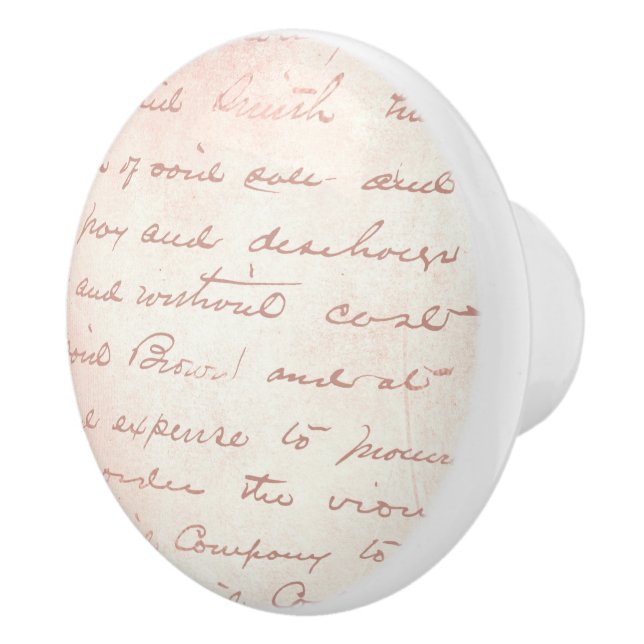 Smith
of said sale and
pay and discharge
and without cost
said Brown and at
expense to
order the
Company to